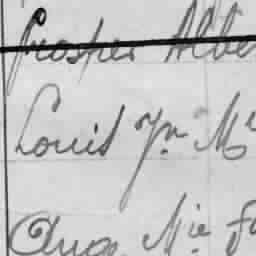 Prosper Albe
Louis Jn Me
Aug Mie